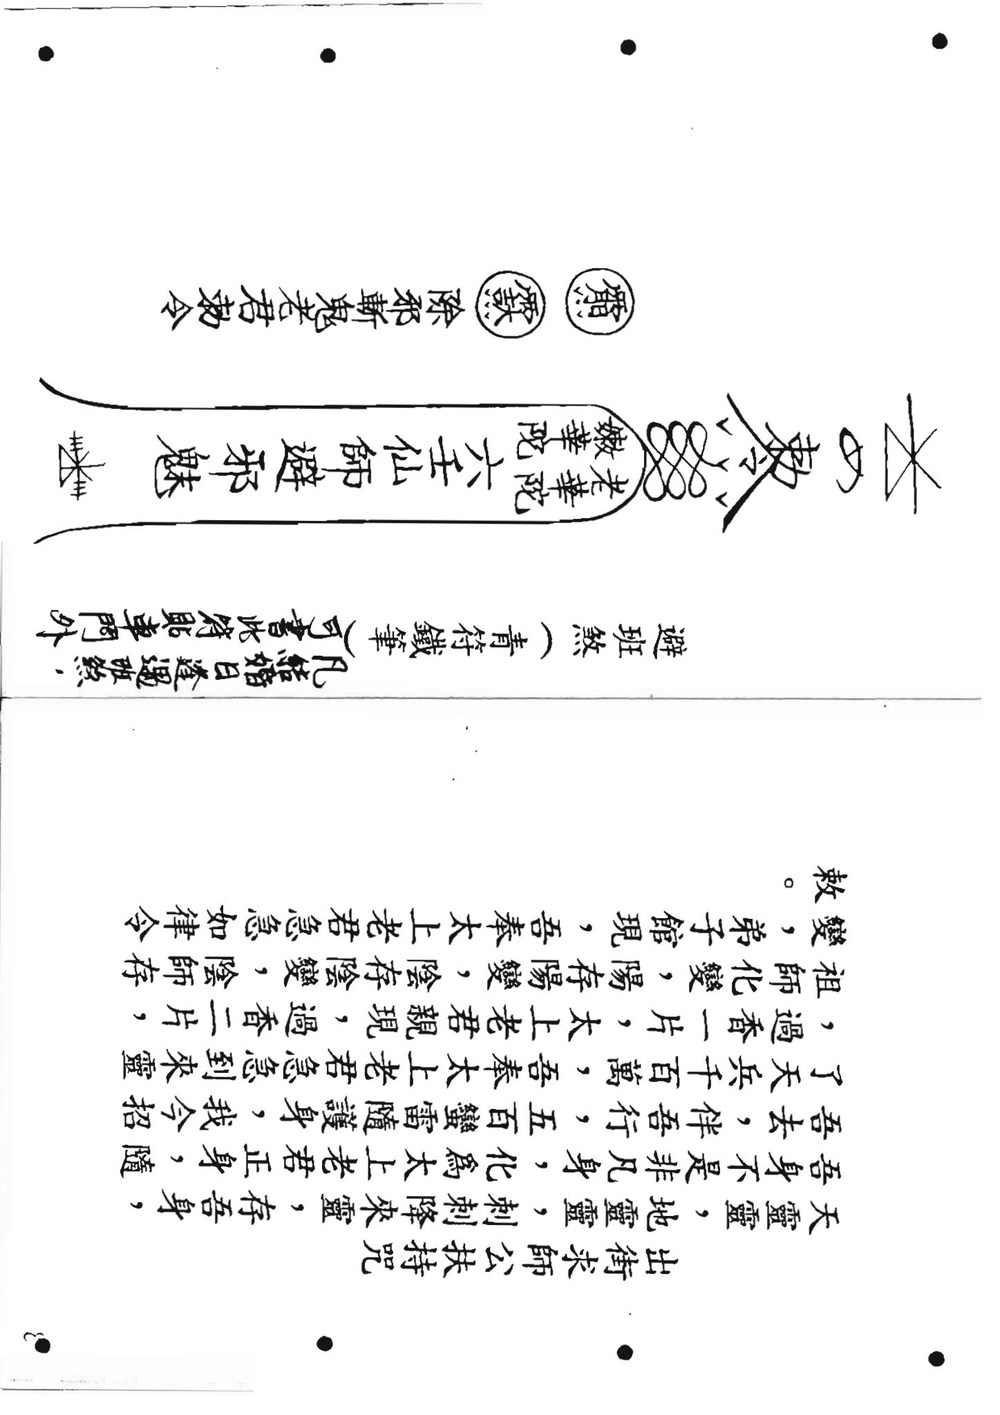 出街求師公扶持咒
天靈靈，地靈靈，刺刺降來靈，存吾身，
吾身不是非凡身，化爲太上老君正身，隨
吾去，伴吾行，五百蠻雷隨護身，我今招
了天兵千百萬，吾奉太上老君急急到來靈
，過香一片，太上老君親現，過香二片，
祖師化變，陽存陽變，陰存陰變，陰師存
變，弟子館現，吾奉太上老君急急如律令
敕。
3
避班煞（青符鐵筆）
凡結婚日逢遇班煞．
可書此符貼車門外
敕令
老華陀
嫩華陀
六壬仙師避邪魅
除邪斬鬼老君敕令